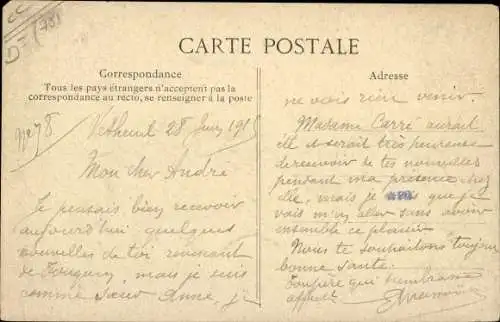 D= (78)
CARTE POSTALE
Correspondance
Tous les pays étrangers n'acceptent pas la
correspondance au recto, se renseigner à la poste
N° 78
Vetheuil 28 Juin 1915
Mon cher André
Je pensais bien recevoir
aujourd'hui quelques
nouvelles de toi revenant
de mais je suis
comme sœur Anne, je
Adresse
ne vois rien venir.
Madame Carré aurait
elle serait très heureuse
de recevoir de tes nouvelles
pendant ma présence chez
elle, mais je que je
vais m'en aller sans avoir
ensemble ce plaisir
Nous te souhaitons toujours
bonne santé.
Ton père qui t'embrasse
affect